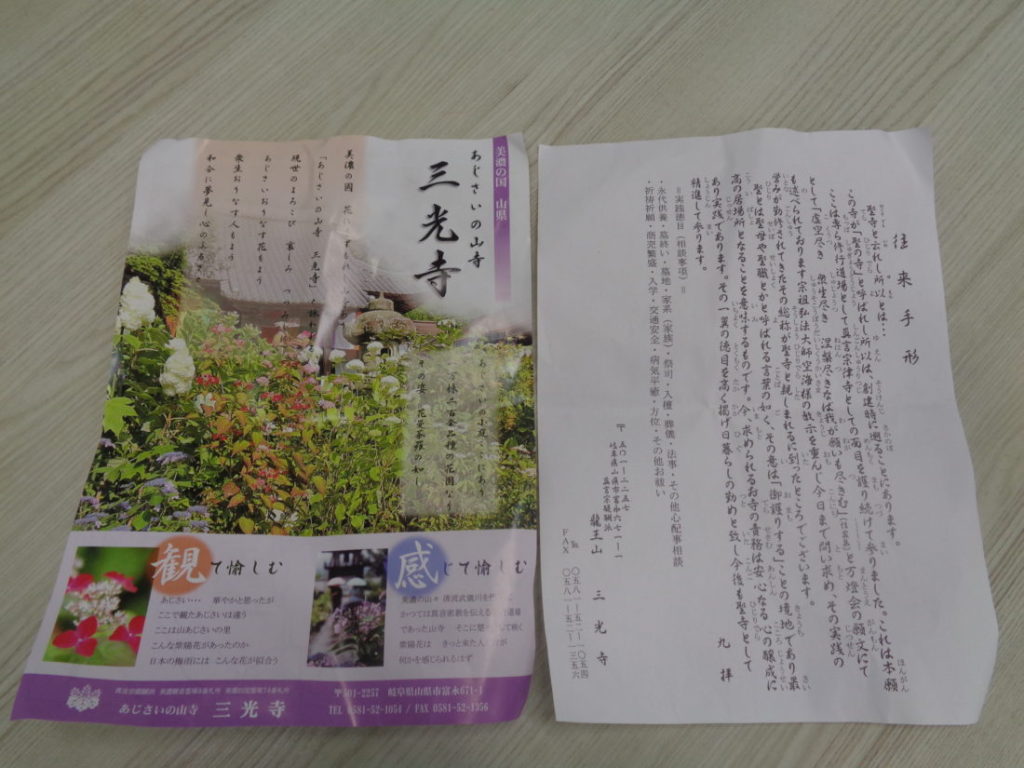 美濃の国 山県
あじさいの山寺
三光寺
美濃の國 花
「あじさいの山寺 三光寺」
現世のよろこび 哀しみ
あじさいおりなす花もよう
衆生おりなす人もよう
和合に夢見し心
観て愉しむ
あじさい・・・ 華やかと思ったが
ここで観たあじさいは違う
ここは山あじさいの里
こんな紫陽花があったのか
日本の梅雨には こんな花が似合う
感じて愉しむ
美濃の山々 清流武儀川を
かつては真言密教を伝える 道場
であった山寺
紫陽花は きっと来た人
何かを感じられるはず
あじさいの山寺 三光寺
〒501-2257 岐阜県山県市富永671-1
TEL 0581-52-1054 / FAX 0581-52-1356
往来手形
聖寺と云れし所以とは…
この寺が「聖の寺」と呼ばれし所以は、創建時に遡ることにあります。
ここは専ら修行道場として真言宗律寺としての面目を護り続けて参りました。これは本願
として「虚空尽き 衆生尽き 涅槃尽きなば我が願いも尽きむ」と万燈会の願文にて
も述べられております宗祖弘法大師空海様の教示を重んじ今日まで問い求め、その実践の
営みが勤修されてきたその総称が聖寺と親しまれるに到ったところでございます。
聖とは聖母や聖職とかと呼ばれる言葉の如く、その意は「御護りする」ことの境地であり最
高の居場所となることを意味するものです。今、求められるお寺の責務は安心なる心の醸成に
あり実践であります。その一翼の徳目を高く掲げ日暮らしの勤めと致し今後も聖寺として
精進して参ります。
九拝
=実践徳目(相談事項)=
・永代供養・墓終い・墓地・家系(家族)・祭司・入檀・葬儀・法事・その他心配事相談
・祈祷祈願・商売繁盛・入学・交通安全・病気平癒・方位・その他お祓い
〒五〇一-二二五七
岐阜県山県市富永六七一-一
真言宗醍醐派
龍王山 三光寺
℡ 〇五八一-五二-一〇五四
FAX 〇五八一-五二-一三五六